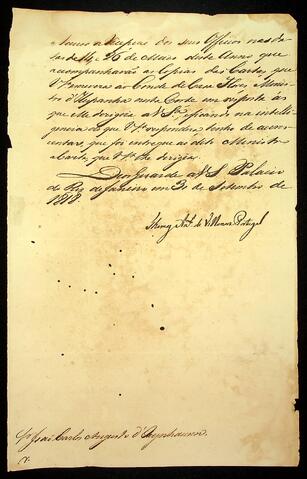 Accuso a recepção dos seus Officios nas da-
tas de 14, e 26 de Maio deste Anno que
acompanharão as Copias das Cartas, que
V Sa escrevia ao Conde de Casa Flores, Minis-
tro d'Hespanha nesta Corte em resposta às
que lhe dirigia a V Sa, ficando na intelli-
gencia do que V Sa respondia; tenho de acres-
centar, que foi entregue ao dito Ministro
a Carta, que V Sa lhe dirigia.
Deos Guarde a V. S. Palacio
do Rio de Janeiro em 2 de Setembro de
1818
Thomaz Anto de Villanova Portugal
Sr João Carlos Augusto d'Oeynhausen.